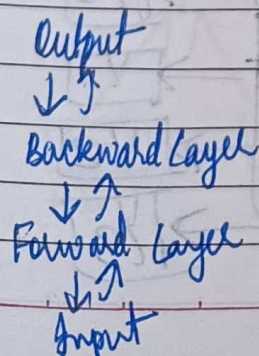 Output
↓ ↑
Backward Layer
↓ ↑
Forward Layer
↓ ↑
Input